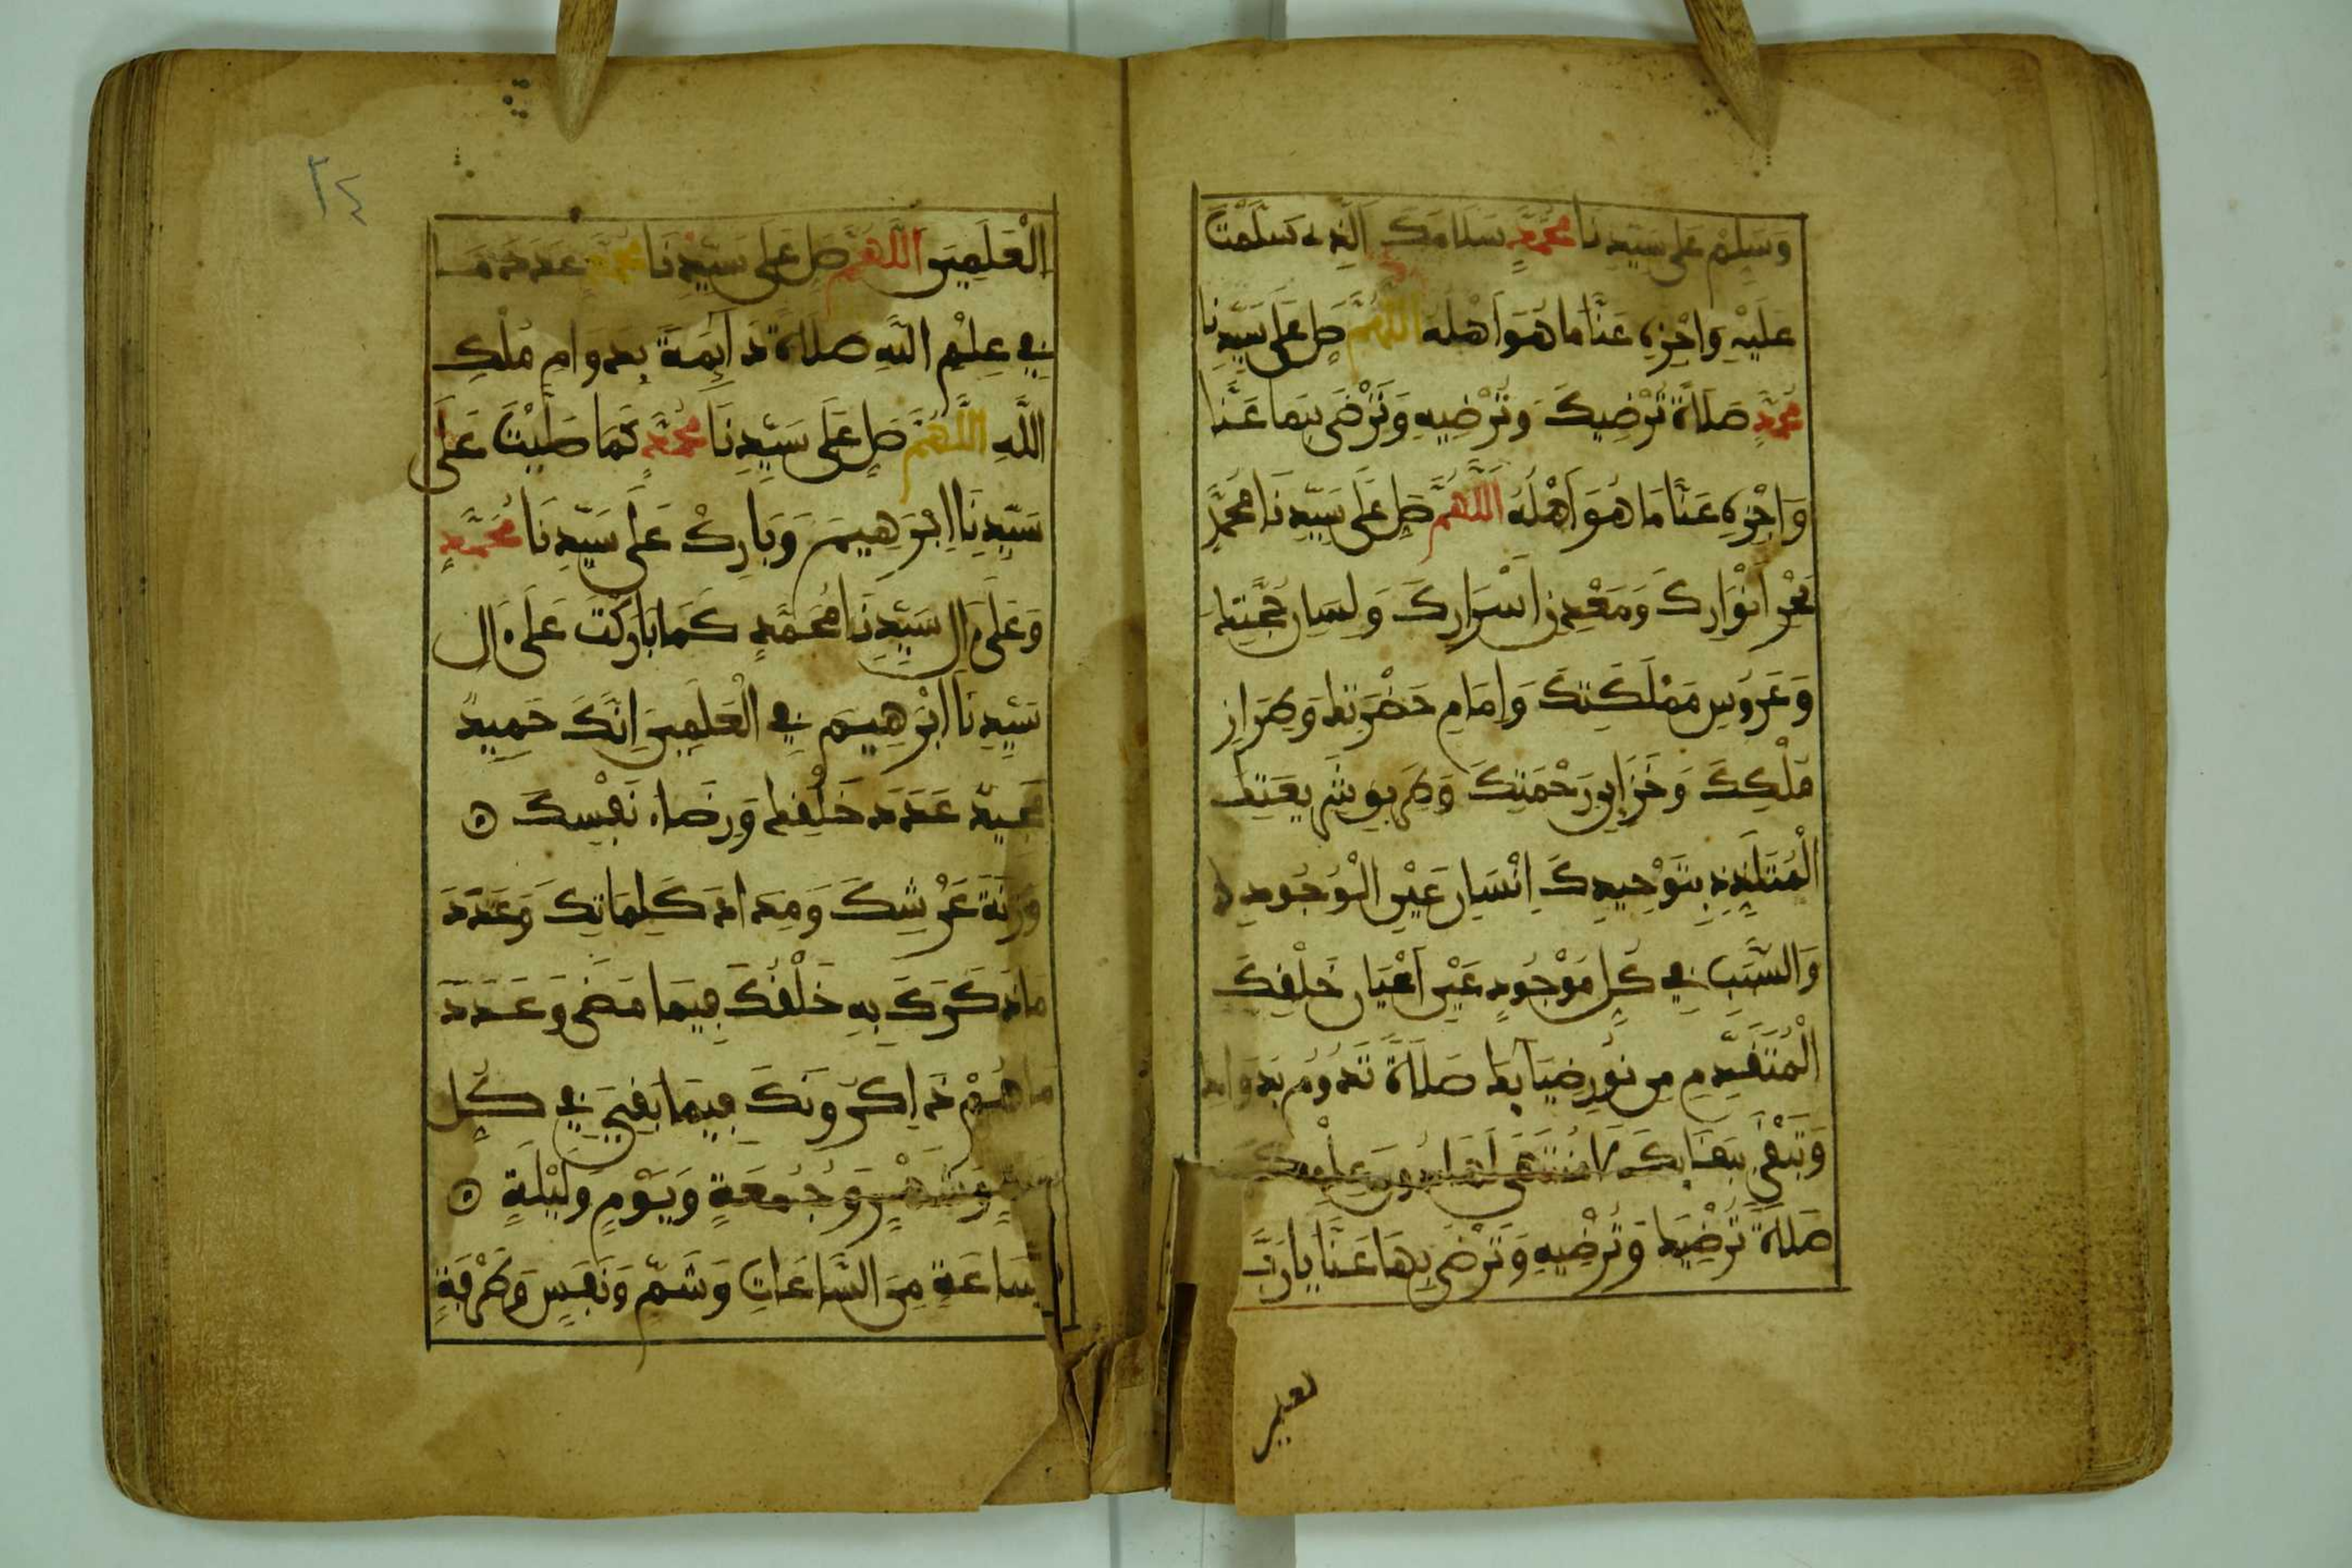 وَسَلِّمْ عَلَى سَيِّدِنَا مُحَمَّدٍ سَلَامَكَ الَّذِے سَلَّمْتَ
عَلَيْهِ وَاجْزِهِ عَنَّا مَا هُوَ أَهْلُهُ اللَّهُمَّ صَلِّ عَلَى سَيِّدِنَا
مُحَمَّدٍ صَلَاةً تُرْضِيكَ وَتُرْضِيهِ وَتَرْضَى بِهَا عَنَّا
وَاجْزِهِ عَنَّا مَا هُوَ أَهْلُهُ اللَّهُمَّ صَلِّ عَلَى سَيِّدِنَا مُحَمَّدٍ
بَحْرِ أَنْوَارِكَ وَمَعْدِنِ أَسْرَارِكَ وَلِسَانِ حُجَّتِكَ
وَعَرُوسِ مَمْلَكَتِكَ وَإِمَامِ حَضْرَتِكَ وَطِرَازِ
مُلْكِكَ وَخَزَائِنِ رَحْمَتِكَ وَطَرِيقِ شَرِيعَتِكَ
الْمُتَلَذِّذِ بِتَوْحِيدِكَ إِنْسَانِ عَيْنِ الْوُجُودِ
وَالسَّبَبِ فِي كُلِّ مَوْجُودٍ عَيْنِ أَعْيَانِ خَلْقِكَ
الْمُتَقَدِّمِ مِن نُورِ ضِيَائِكَ صَلَاةً تَدُومُ بِدَوَامِكَ
وَتَبْقَى بِبَقَائِكَ لَا مُنْتَهَى لَهَا دُونَ عِلْمِكَ
صَلَاةً تُرْضِيكَ وَتُرْضِيهِ وَتَرْضَى بِهَا عَنَّا يَا رَبَّ
٣٤
الْعَلَمِينَ اللَّهُمَّ صَلِّ عَلَى سَيِّدِنَا مُحَمَّدٍ عَدَدَ مَا
فِي عِلْمِ اللَّهِ صَلَاةً دَائِمَةً بِدَوَامِ مُلْكِ
اللَّهِ اللَّهُمَّ صَلِّ عَلَى سَيِّدِنَا مُحَمَّدٍ كَمَا صَلَّيْتَ عَلَى
سَيِّدِنَا إِبْرَهِيمَ وَبَارِكْ عَلَى سَيِّدِنَا مُحَمَّدٍ
وَعَلَى ءَالِ سَيِّدِنَا مُحَمَّدٍ كَمَا بَارَكْتَ عَلَى ءَالِ
سَيِّدِنَا إِبْرَهِيمَ فِي الْعَلَمِينَ إِنَّكَ حَمِيدٌ
مَجِيدٌ عَدَدَ خَلْقِكَ وَرِضَاءَ نَفْسِكَ
وَزِنَةَ عَرْشِكَ وَمِدَادَ كَلِمَاتِكَ وَعَدَدَ
مَا ذَكَرَكَ بِهِ خَلْقُكَ فِيمَا مَضَى وَعَدَدَ
مَا هُمْ ذَاكِرُونَكَ فِيمَا بَقِيَ فِي كُلِّ
سَنَةٍ وَشَهْرٍ وَجُمُعَةٍ وَيَوْمٍ وَلَيْلَةٍ
وَسَاعَةٍ مِنَ السَّاعَاتِ وَشَمٍّ وَنَفَسٍ وَطَرْفَةٍ